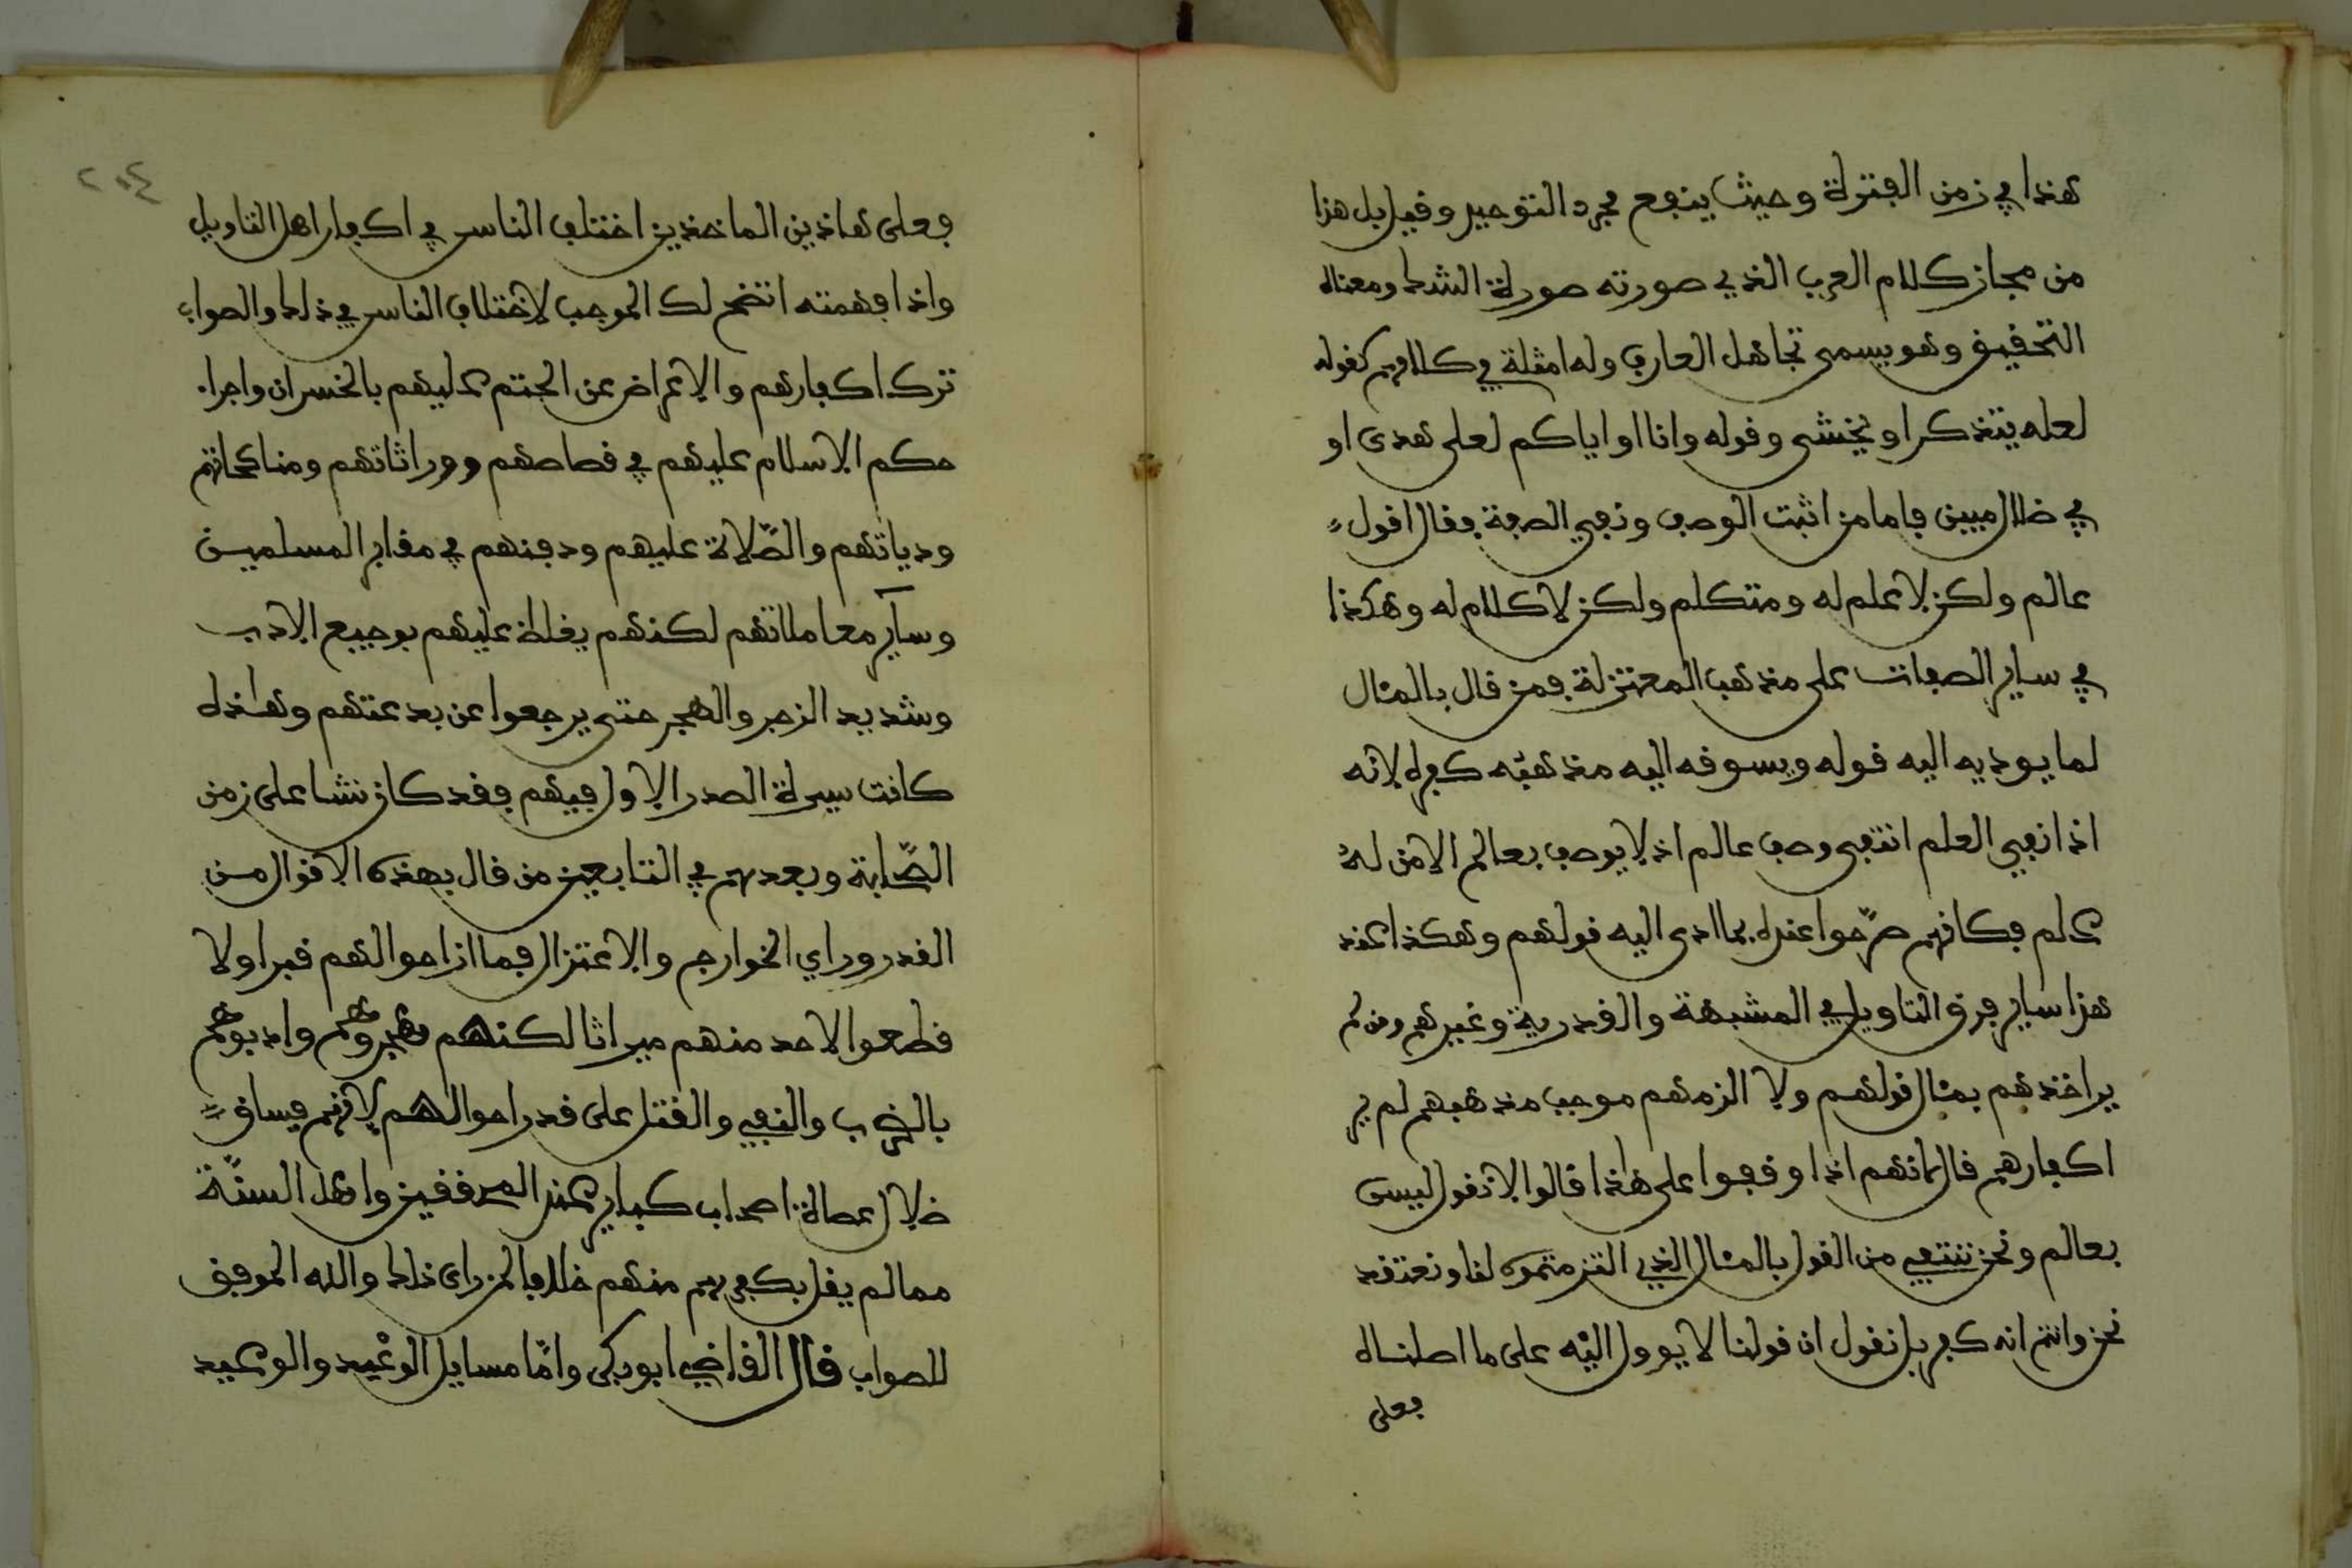 هذا في زمن الفترة وحيث ينفع مجرد التوحيد وقيل بل هذا
من مجاز كلام العرب الذي صورته صورة الشك ومعناه
التحقيق وهو يسمى تجاهل العارف وله امثلة في كلامهم كقوله
لعله يتذكر او يخشى وقوله وانا او اياكم لعلى هدى او
في ضلال مبين فاما من اثبت الوصف ونفى الصفة فقال اقول
عالم ولكن لا علم له ومتكلم ولكن لا كلام له وهكذا
في ساير الصفات على مذهب المعتزلة فمن قال بالمئال
لما يوديه اليه قوله ويسوقه اليه مذهبه كفره لانه
اذا نفي العلم انتفى وصف عالم اذ لا يوصف بعالم الا من له
علم فكانهم صرّحوا عنده بما ادى اليه قولهم وهكذا عند
هذا ساير فرق التاويل في المشبهة والقدرية وغيرهم ومن لم
ير اخذهم بمئال قولهم ولا الزمهم موجب مذهبهم لم ير
اكفارهم قال لانهم اذا وقفوا على هذا قالوا لا نقول ليس
بعالم ونحن ننتفي من القول بالمئال الذي الزمتموه لنا ونعتقد
نحن وانتم انه كفر بل نقول ان قولنا لا يوول اليه على ما اصلناه
فعلى
٢٠٤
فعلى هاذين الماخذين اختلف الناس في اكفار اهل التاويل
واذا فهمته اتضح لك الموجب لاختلاف الناس في ذلك والصواب
ترك اكفارهم والاعراض عن الحتم عليهم بالخسران واجراء
حكم الاسلام عليهم في قصاصهم ووراثاتهم ومناكحاتهم
ودياتهم والصّلاة عليهم ودفنهم في مقابر المسلمين
وسآير معاملاتهم لكنهم يغلظ عليهم بوجيع الادب
وشديد الزجر والهجر حتى يرجعوا عن بدعتهم وهذه
كانت سيرة الصدر الاول فيهم فقد كان نشا على زمن
الصّحابة وبعدهم في التابعين من قال بهذه الاقوال من
القدر وراي الخوارج والاعتزال فما ازاحوا لهم قبرا ولا
قطعوا لاحد منهم ميراثا لكنهم هجروهم وادبوهم
بالضرب والنفي والقتل على قدر احوالهم لانهم فساق
ضلال عصاة اصحاب كباير عند المحققين واهل السنّة
ممن لم يقل بكفرهم منهم خلافا لمن راى ذلك والله الموفق
للصواب قال القاضي ابو بكر وامّا مسايل الوعد والوعيد